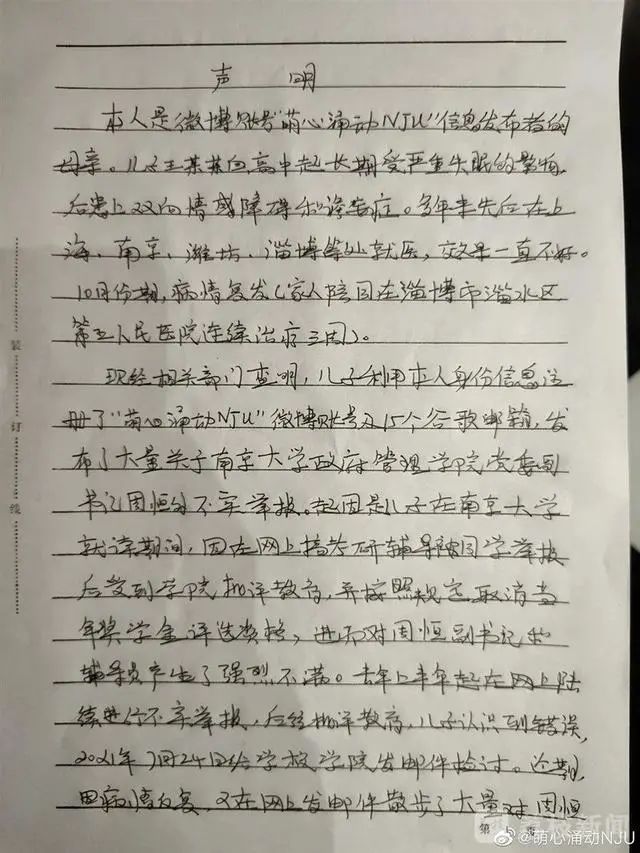 声 明
本人是微博账号"萌心涌动NJU"信息发布者的
母亲。儿子王某某自高中起长期受严重失眠的影响,
后患上双向情感障碍和谵妄症。多年来先后在上
海、南京、潍坊、淄博等处就医,效果一直不好。
10月份期,病情复发(家人陪同在淄博市淄水区
第五人民医院连续治疗三周)。
现经相关部门查明,儿子利用本人身份信息注
册了"萌心涌动NJU"微博账号及15个谷歌邮箱,发
布了大量关于南京大学政府管理学院党委副
书记周恒的不实举报。起因是儿子在南京大学
就读期间,因在网上搞考研辅导被同学举报
后受到学院批评教育,并按照规定取消当
年奖学金评选资格,进而对周恒副书记和
辅导员产生了强烈不满。去年上半年起在网上陆
续进行不实举报,后经批评教育,儿子认识到错误,
2021年7月24日给学校学院发邮件检讨。近期,
因病情反复,又在网上发邮件散步了大量对周恒
装
订
线
第 页
@萌心涌动NJU